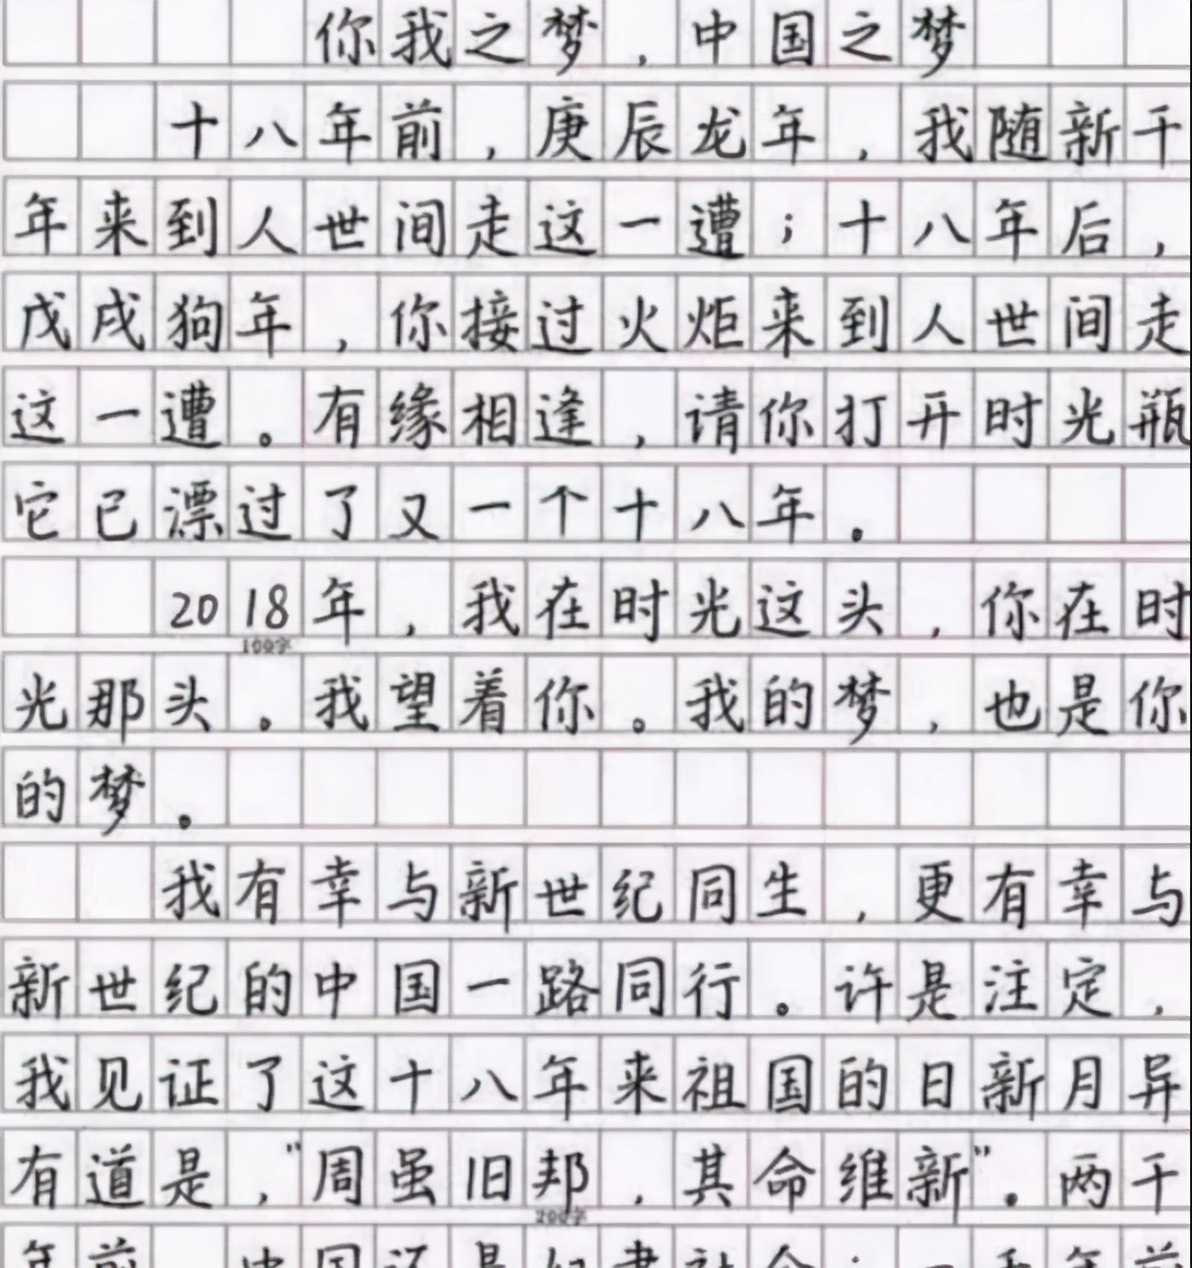 你我之梦，中国之梦
十八年前，庚辰龙年，我随新千
年来到人世间走这一遭；十八年后，
戊戌狗年，你接过火炬来到人世间走
这一遭。有缘相逢，请你打开时光瓶
它已漂过了又一个十八年。
2018年，我在时光这头，你在时
100字
光那头。我望着你。我的梦，也是你
的梦。
我有幸与新世纪同生，更有幸与
新世纪的中国一路同行。许是注定，
我见证了这十八年来祖国的日新月异
有道是，"周虽旧邦，其命维新"。两千
200字